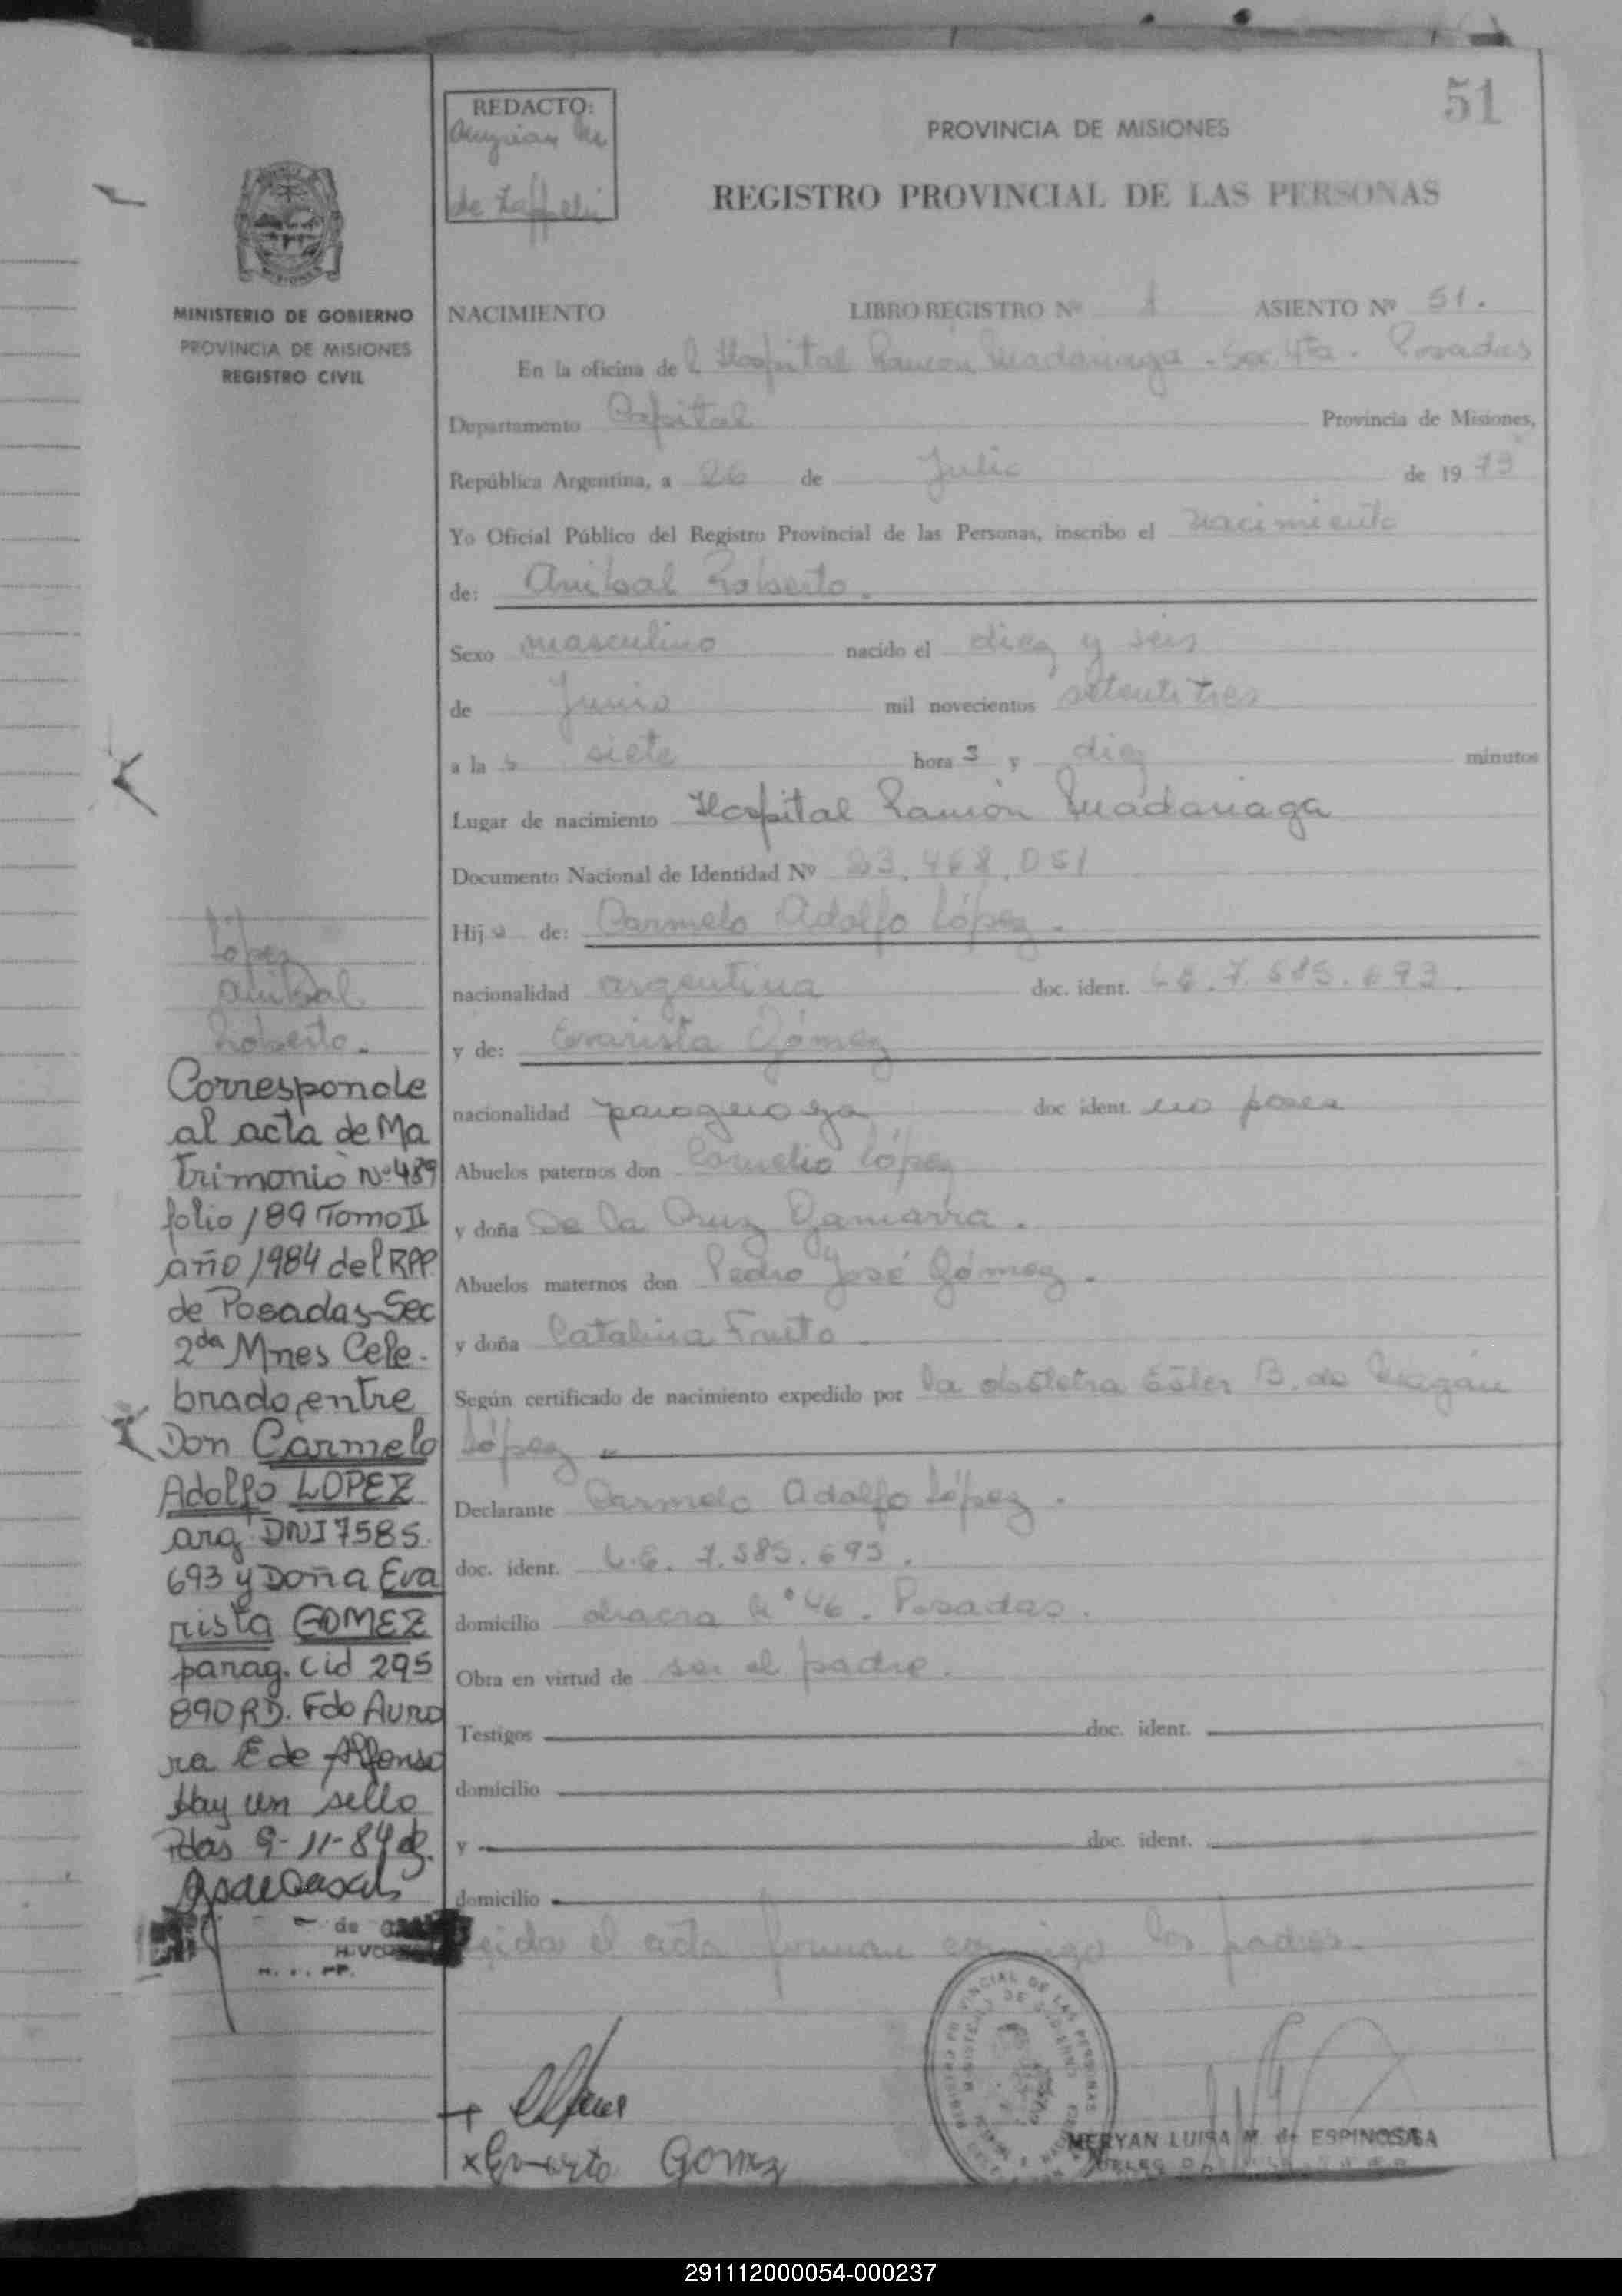 51
REDACTO:
de
PROVINCIA DE MISIONES
REGISTRO PROVINCIAL DE LAS PERSONAS
MINISTERIO DE GOBIERNO
PROVINCIA DE MISIONES
REGISTRO CIVIL
NACIMIENTO LIBRO REGISTRO Nº 1 ASIENTO Nº 51.
En la oficina de l Hospital Ramón Madariaga - Sec. 4ta. Posadas
Departamento Capital Provincia de Misiones,
República Argentina, a 26 de Julio de 1973
Yo Oficial Público del Registro Provincial de las Personas, inscribo el Nacimiento
de: Anibal Roberto.
Sexo masculino nacido el diez y seis
de Junio mil novecientos setenti tres
a la s siete hora s y diez minutos
Lugar de nacimiento Hospital Ramón Madariaga
Documento Nacional de Identidad Nº 23.468.051
Hij o de: Carmelo Adolfo López.
nacionalidad argentina doc. ident. L.E. 7.585.693.
y de: Evarista Gómez
nacionalidad paraguaya doc ident. no posee
Abuelos paternos don Cornelio López
y doña De la Cruz Gamarra.
Abuelos maternos don Pedro José Gómez.
y doña Catalina Fruto.
Según certificado de nacimiento expedido por la obstetra Ester B. de
López
Declarante Carmelo Adolfo López.
doc. ident. L.E. 7.585.693.
domicilio chacra Nº 46. Posadas.
Obra en virtud de ser el padre.
Testigos doc. ident.
domicilio
y doc. ident.
domicilio
el acta firman conmigo los padres.
López
Anibal
Roberto.
Corresponde
al acta de Ma
trimonio Nº 489
folio 189 Tomo II
año 1984 del RPP
de Posadas-Sec
2da Mnes Cele-
brado, entre
Don Carmelo
Adolfo LOPEZ
arg DNI 7585.
693 y Doña Eva
rista GOMEZ
parag. cid 295
890 RP. Fdo Auro
ra E de Alfonso
Hay un sello
Pdas 9-11-84
de
Gomez
MERYAN LUISA M. de ESPINOSA
291112000054-000237